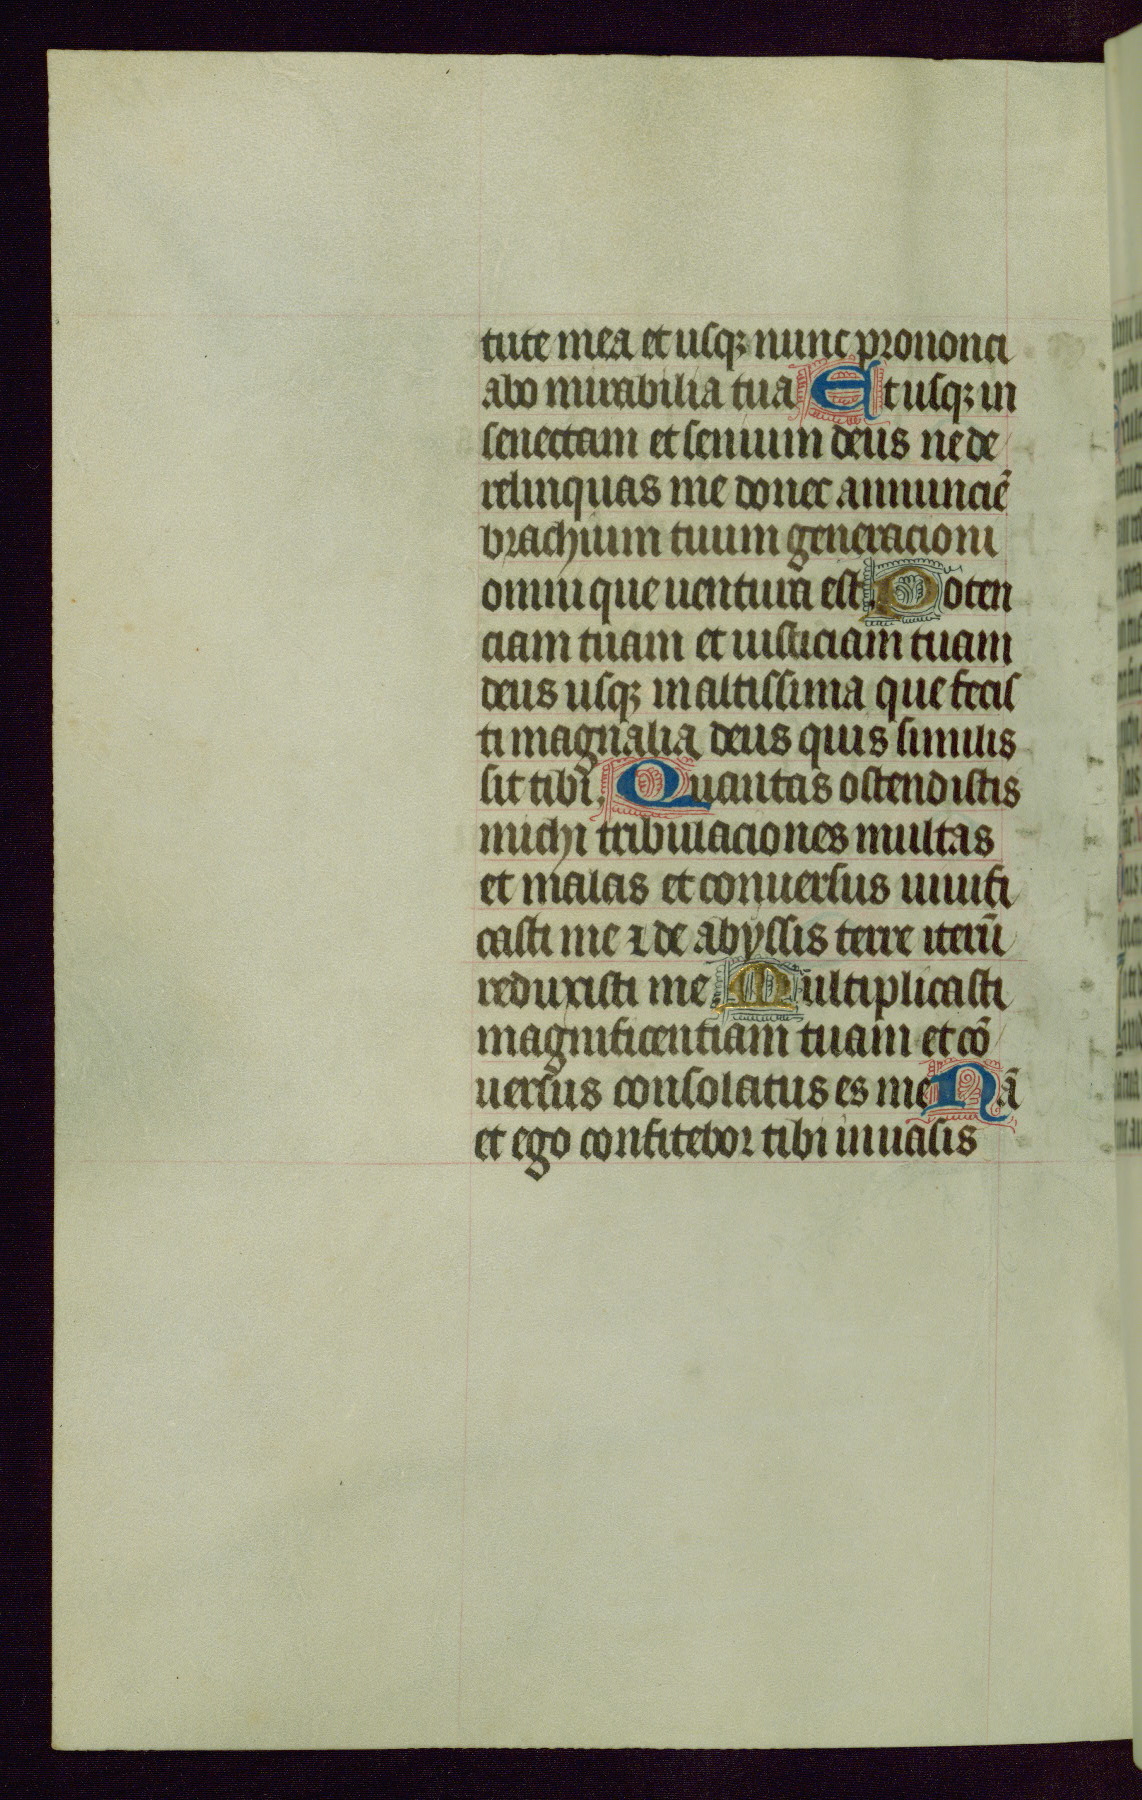 tute mea et usqꝫ nunc prononci
abo mirabilia tua Et usqꝫ in
senectam et senium deus ne de
relinquas me donec annunciẽ
brachium tuum generacioni
omni que uentura est. Poten
ciam tuam et iusticiam tuam
deus usqꝫ in altissima que fecis
ti magnalia deus quis similis
sit tibi. Quantas ostendistis
michi tribulaciones multas
et malas et conuersus uiuifi
casti me ⁊ de abyssis terre iterũ
reduxisti me. Multiplicasti
magnificentiam tuam et cõ
uersus consolatus es me Nã
et ego confitebor tibi in uasis